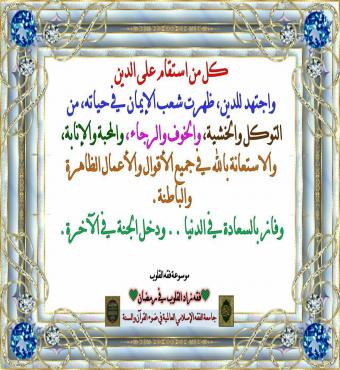 كل من استقام على الدين
واجتهد للدين، ظهرت شعب الإيمان في حياته، من
التوكل والخشية، والخوف والرجاء، والمحبة والإنابة،
والاستعانة بالله في جميع الأقوال والأعمال الظاهرة
والباطنة.
وفاز بالسعادة في الدنيا .. ودخل الجنة في الآخرة.
موسوعة فقه القلوب
فقه زاد القلوب في رمضان
جامعة الفقه الإسلامي العالمية في ضوء القرآن والسنة